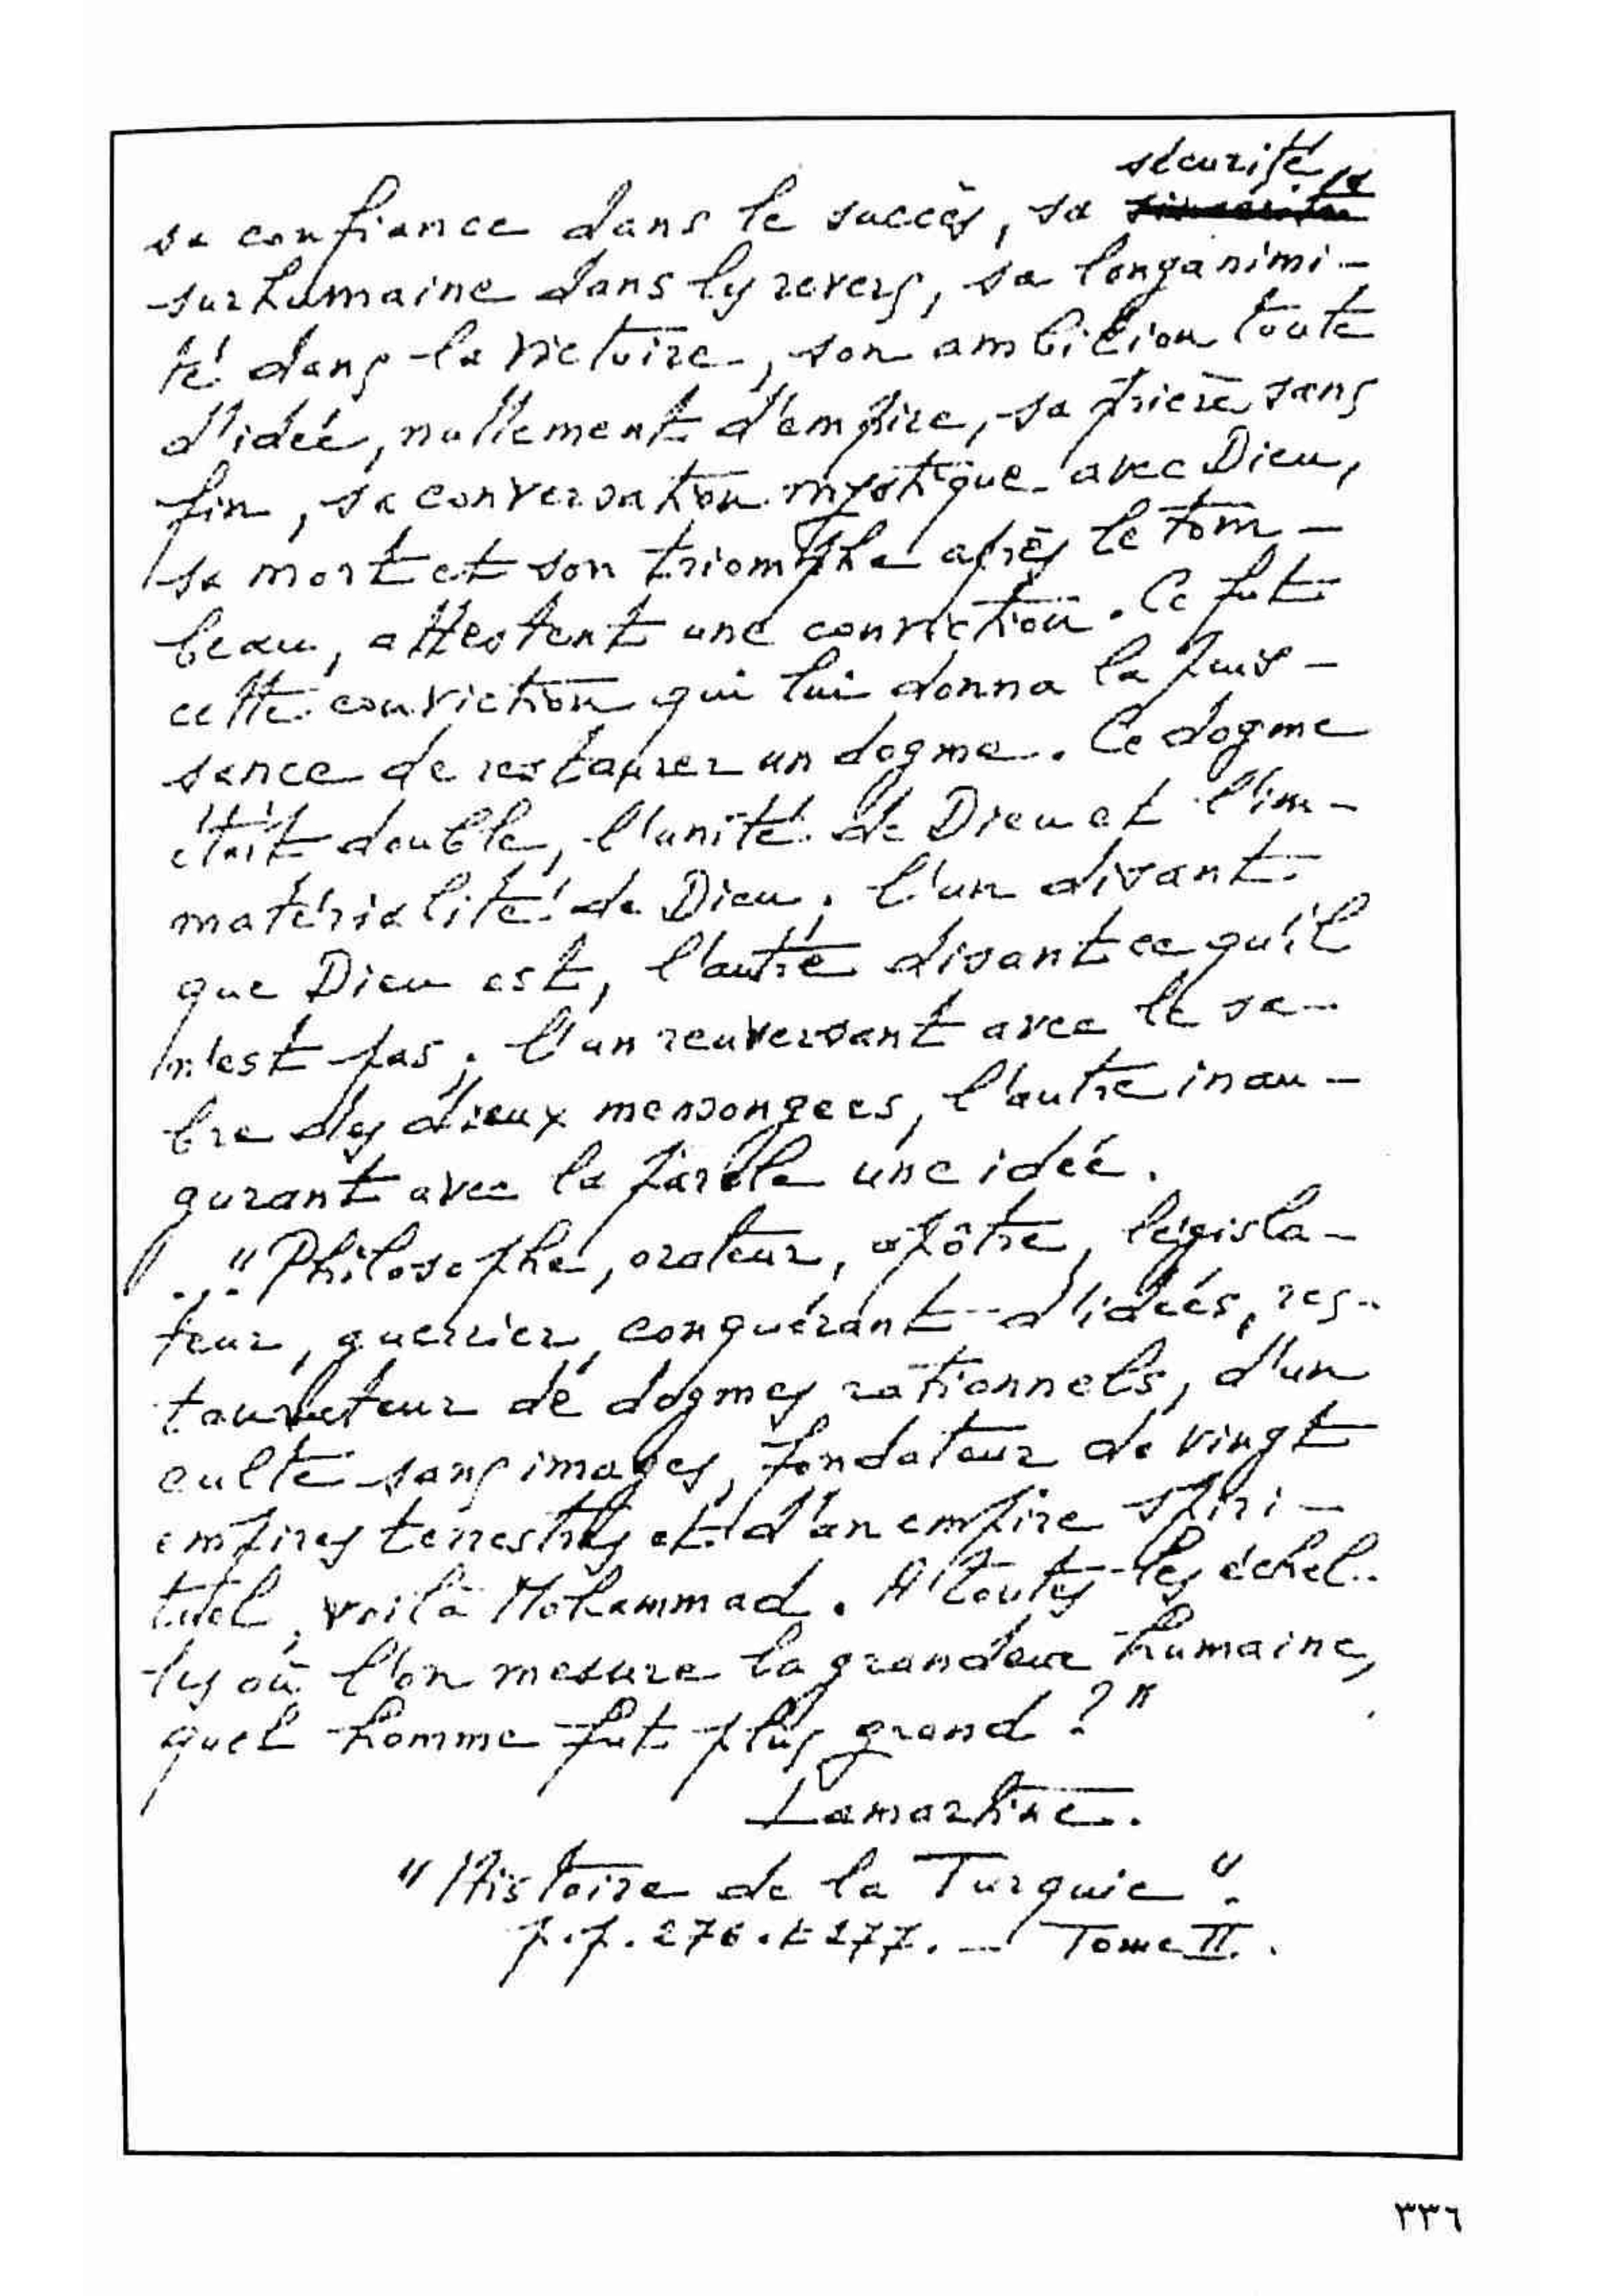 sécurité
sa confiance dans le succès, sa
surhumaine dans les revers, sa longanimi-
té dans la victoire, son ambition toute
d'idée, nullement d'empire, sa prière sans
fin, sa conversation mystique avec Dieu,
sa mort et son triomphe après le tom-
beau, attestent une conviction. Ce fut
cette conviction qui lui donna la puis-
sance de restaurer un dogme. Ce dogme
était double, l'unité de Dieu et l'im-
matérialité de Dieu; l'un disant
que Dieu est, l'autre disant ce qu'il
n'est pas; l'un renversant avec le sa-
bre des dieux mensongers, l'autre inau-
gurant avec la parole une idée.
..."Philosophe, orateur, apôtre, législa-
teur, guerrier, conquérant d'idées, res-
taurateur de dogmes rationnels, d'un
culte sans images, fondateur de vingt
empires terrestres et d'un empire spiri-
tuel, voilà Mohammad. A toutes les échel-
les où l'on mesure la grandeur humaine,
quel homme fut plus grand ?"
Lamartine.
"Histoire de la Turquie".
p.p. 276 et 277. — Tome II.
٣٣٦